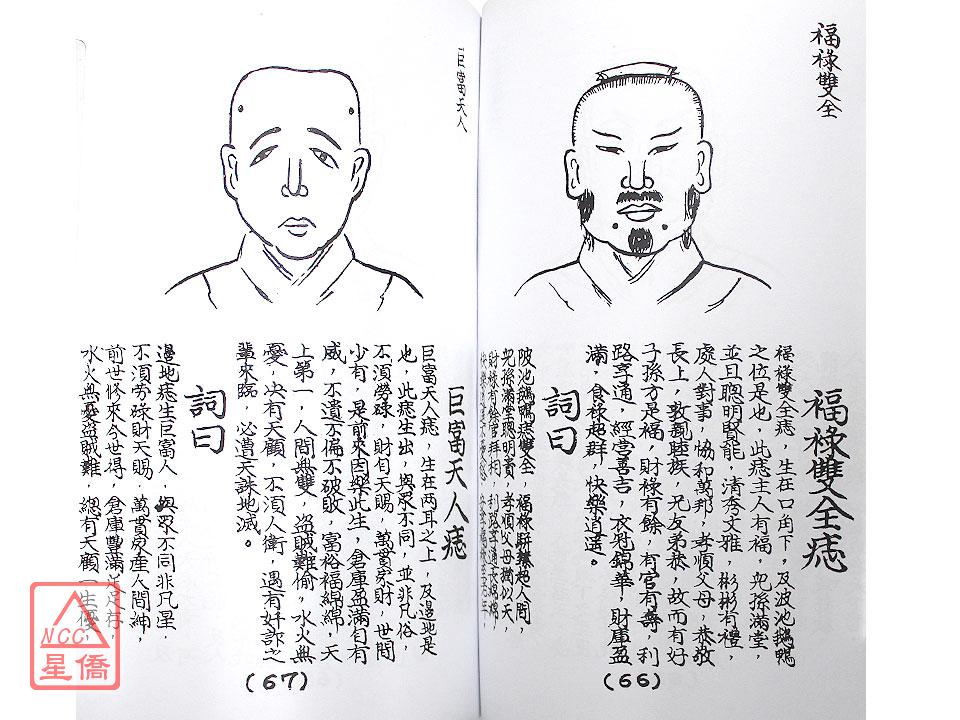 福祿雙全
福祿雙全痣
福祿雙全痣，生在口角下，及波池鵝鴨
之位是也，此痣主人有福，兒孫滿堂，
並且聰明賢能，清秀文雅，彬彬有禮，
處人對事，協和萬邦，孝順父母，恭敬
長上，敦親睦族，兄友弟恭，故而有好
子孫方是福，財祿有餘，有官有壽，利
路亨通，經營善吉，衣祀錦華，財庫盈
滿，食祿超群，快樂逍遥。
詞曰
陂池鵝鴨痣雙全，福祿駢臻超人間，
兒孫滿堂聰明貴，孝順父母樹似天，
財祿有餘官拜相，利路亨通長綿綿，
(66)
巨富天人
巨富天人痣
巨富天人痣，生在两耳之上，及邊地是
也，此痣生出，與眾不同，並非凡俗，
不須勞碌，財有天賜，萬貫家財，世間
少有，是前來因樂此生，倉庫盈滿自有
威，不遺不偏不破敗，富裕福綿綿，天
上第一，人間無雙，盜賊難偷，水火無
憂，央有天顧，不須人衛，遇有奸詐之
輩來臨，必遭天誅地滅。
詞曰
邊地痣生巨富人，與眾不同非凡星，
不須勞碌財天賜，萬貫家產人間紳，
前世修來今世得，倉庫豐滿足足存，
水火無憂盜賊難，總有天顧一生優，
(67)
NCC
星僑